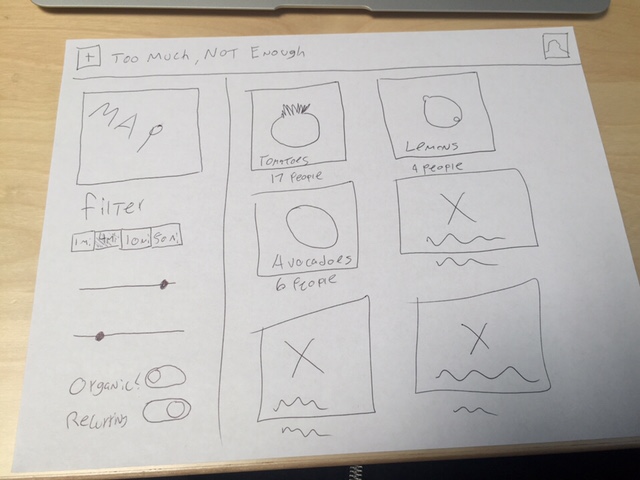 + Too Much, Not Enough
MAP
Filter
1 mi 10 mi 50 mi
Organic?
Recurring
Tomatoes
17 People
Lemons
4 People
Avocadoes
6 People
X
X
X